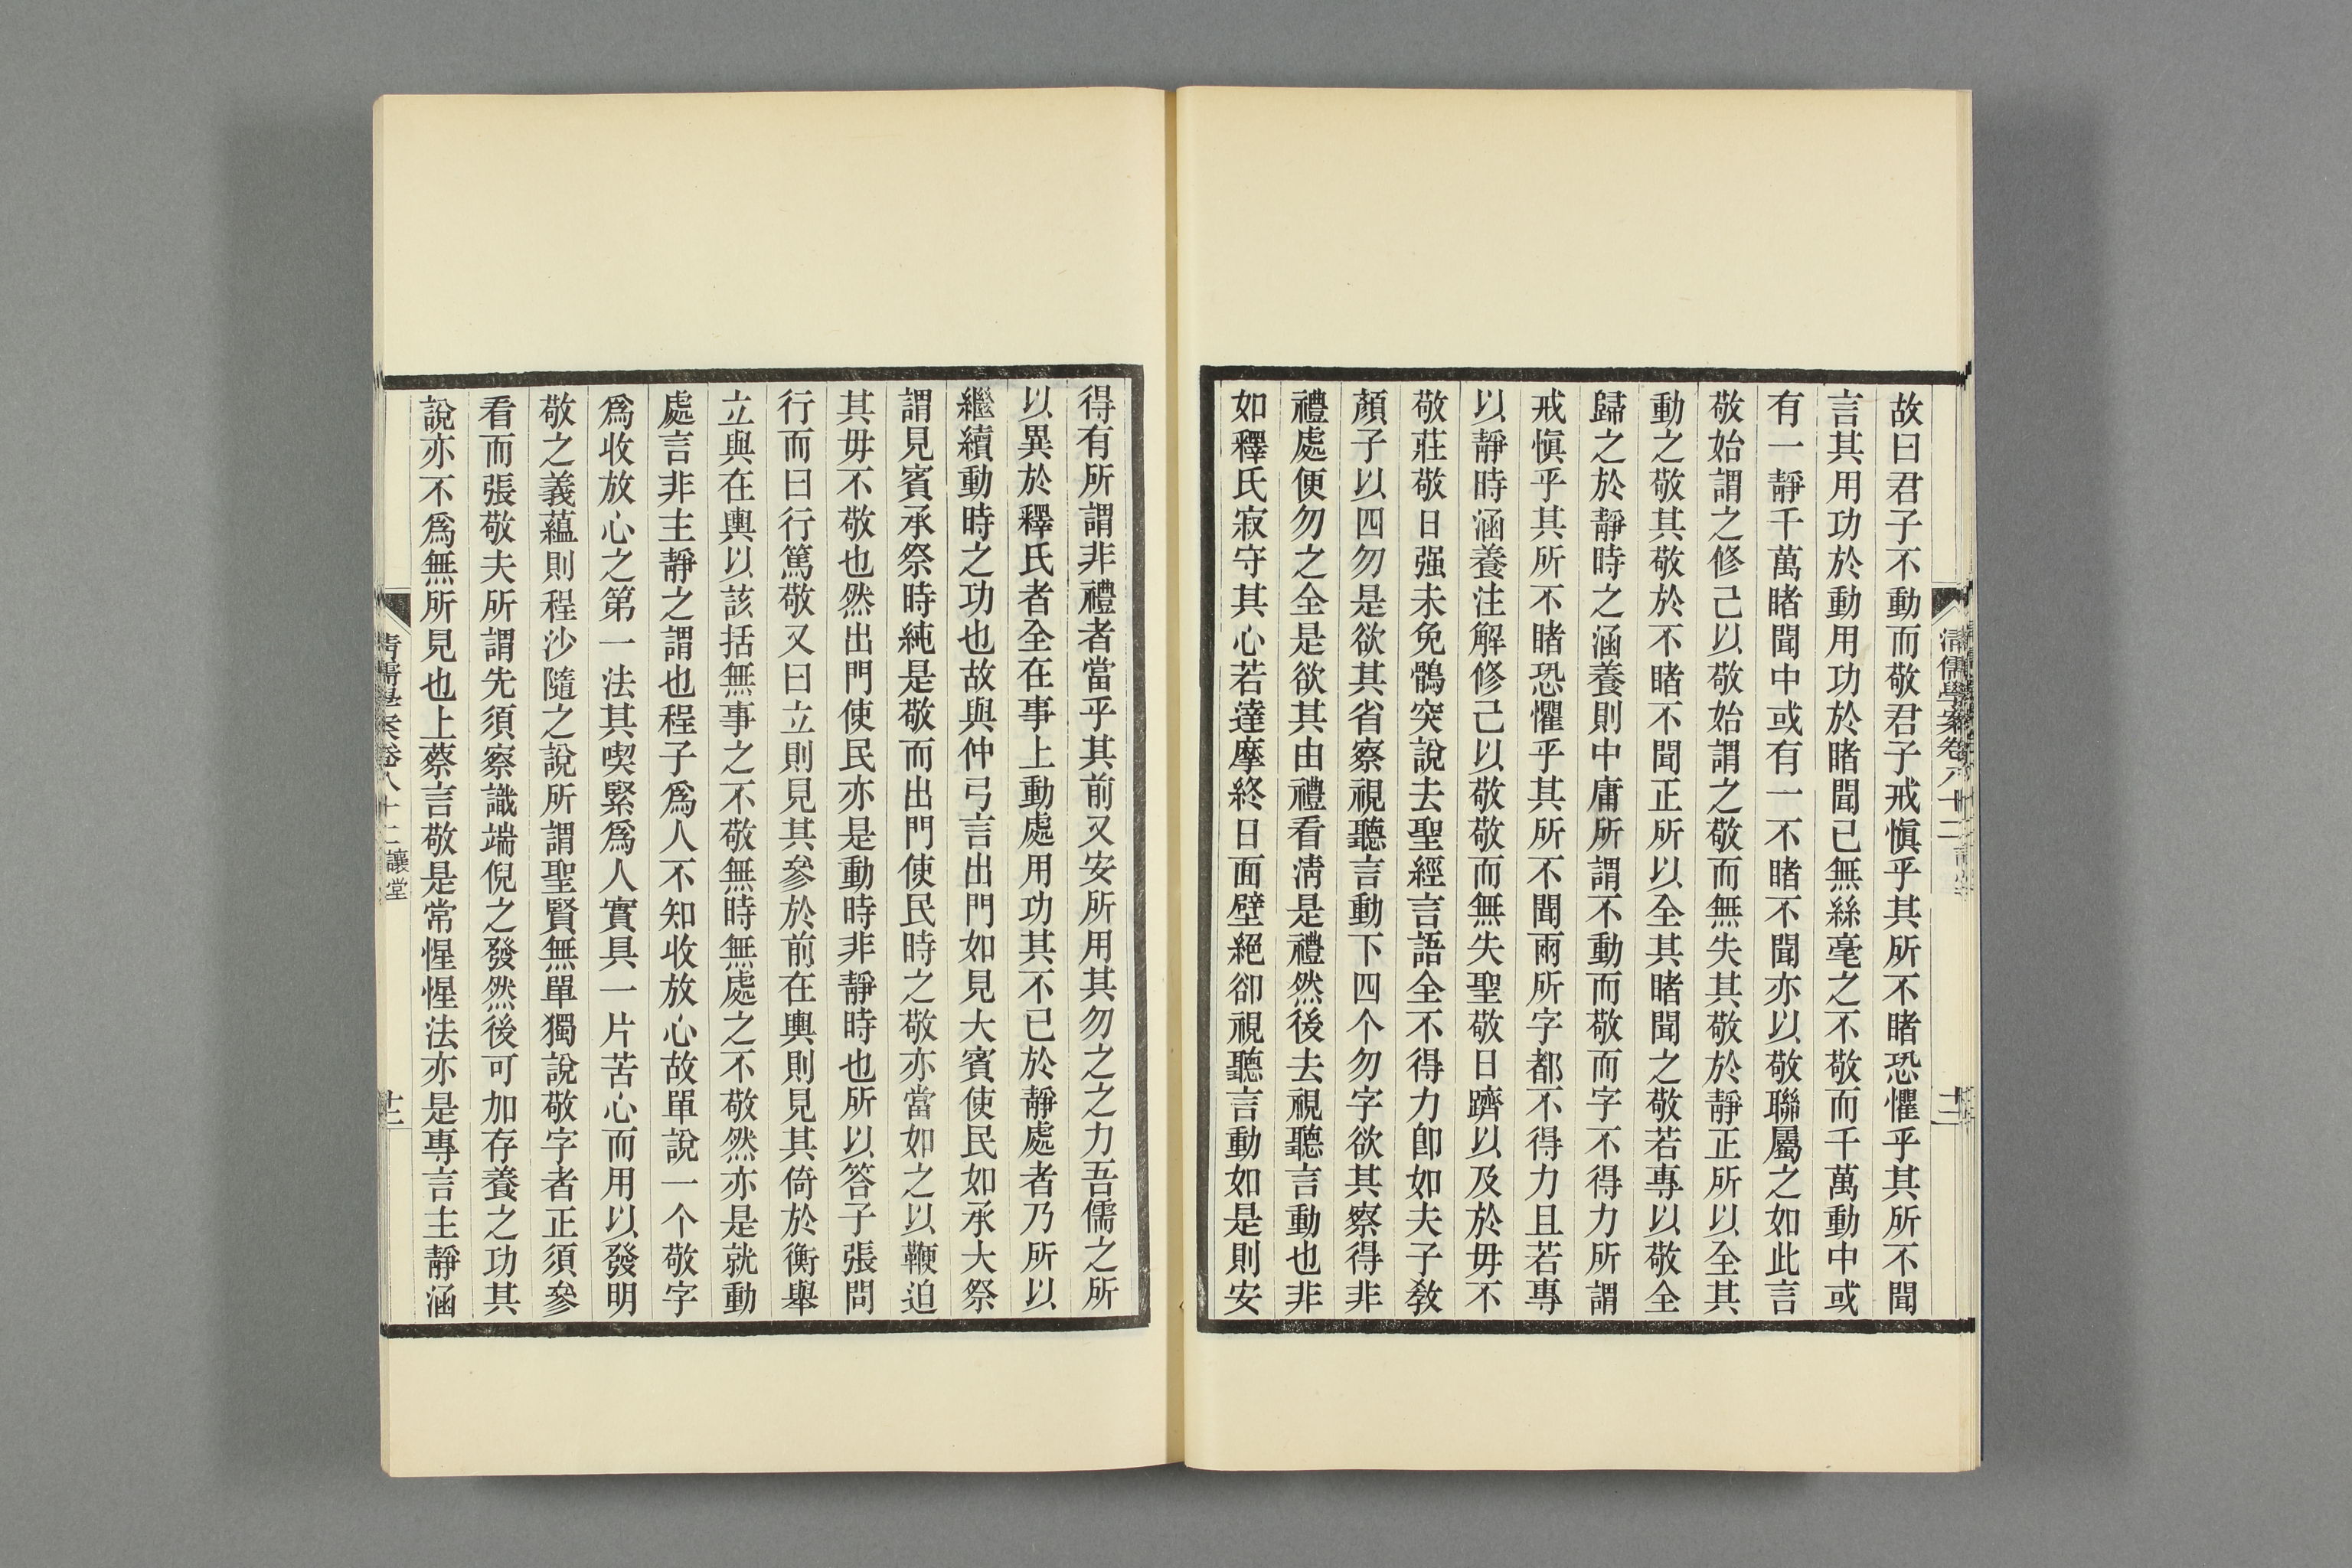 故曰君子不動而敬君子戒愼乎其所不睹恐懼乎其所不聞
言其用功於動用功於睹聞已無絲毫之不敬而千萬動中或
有一靜千萬睹聞中或有一不睹不聞亦以敬聯屬之如此言
敬始謂之修己以敬始謂之敬而無失其敬於靜正所以全其
動之敬其敬於不睹不聞正所以全其睹聞之敬若專以敬全
歸之於靜時之涵養則中庸所謂不動而敬而字不得力所謂
戒愼乎其所不睹恐懼乎其所不聞兩所字都不得力且若專
以靜時涵養注解修己以敬敬而無失聖敬日躋以及於毋不
敬莊敬日强未免鶻突說去聖經言語全不得力卽如夫子敎
顏子以四勿是欲其省察視聽言動下四个勿字欲其察得非
禮處便勿之全是欲其由禮看淸是禮然後去視聽言動也非
如釋氏寂守其心若達摩終日面壁絕卻視聽言動如是則安
清儒學案卷八十二
十二
得有所謂非禮者當乎其前又安所用其勿之之力吾儒之所
以異於釋氏者全在事上動處用功其不已於靜處者乃所以
繼續動時之功也故與仲弓言出門如見大賓使民如承大祭
謂見賓承祭時純是敬而出門使民時之敬亦當如之以鞭迫
其毋不敬也然出門使民亦是動時非靜時也所以答子張問
行而曰行篤敬又曰立則見其參於前在輿則見其倚於衡舉
立與在輿以該括無事之不敬無時無處之不敬然亦是就動
處言非主靜之謂也程子爲人不知收放心故單說一个敬字
爲收放心之第一法其喫緊爲人實具一片苦心而用以發明
敬之義蘊則程沙隨之說所謂聖賢無單獨說敬字者正須參
看而張敬夫所謂先須察識端倪之發然後可加存養之功其
說亦不爲無所見也上蔡言敬是常惺惺法亦是專言主靜涵
清儒學案卷八十二
讓堂
十二